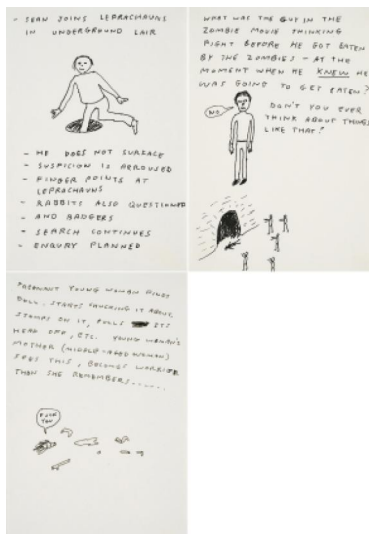 - SEAN JOINS LEPRACHAUNS
IN UNDERGROUND LAIR
- HE DOES NOT SURFACE
- SUSPICION IS AEROUSED
- FINGER POINTS AT
LEPRACHAUNS
- RABBITS ALSO QUESTIONED
- AND BADGERS
- SEARCH CONTINUES
- ENQURY PLANNED
WHAT WAS THE GUY IN THE
ZOMBIE MOVIE THINKING
RIGHT BEFORE HE GOT EATEN
BY THE ZOMBIES - AT THE
MOMENT WHEN HE KNEW HE
WAS GOING TO GET EATEN?
NO
DON'T YOU EVER
THINK ABOUT THINGS
LIKE THAT?
PREGNANT YOUNG WOMAN FINDS
DOLL. STARTS CHUCKING IT ABOUT,
STAMPS ON IT, PULLS ITS
HEAD OFF, ETC. YOUNG WOMAN'S
MOTHER (MIDDLE-AGED WOMAN)
SEES THIS, BECOMES
THAN SHE REMEMBERS......
FUCK
YOU